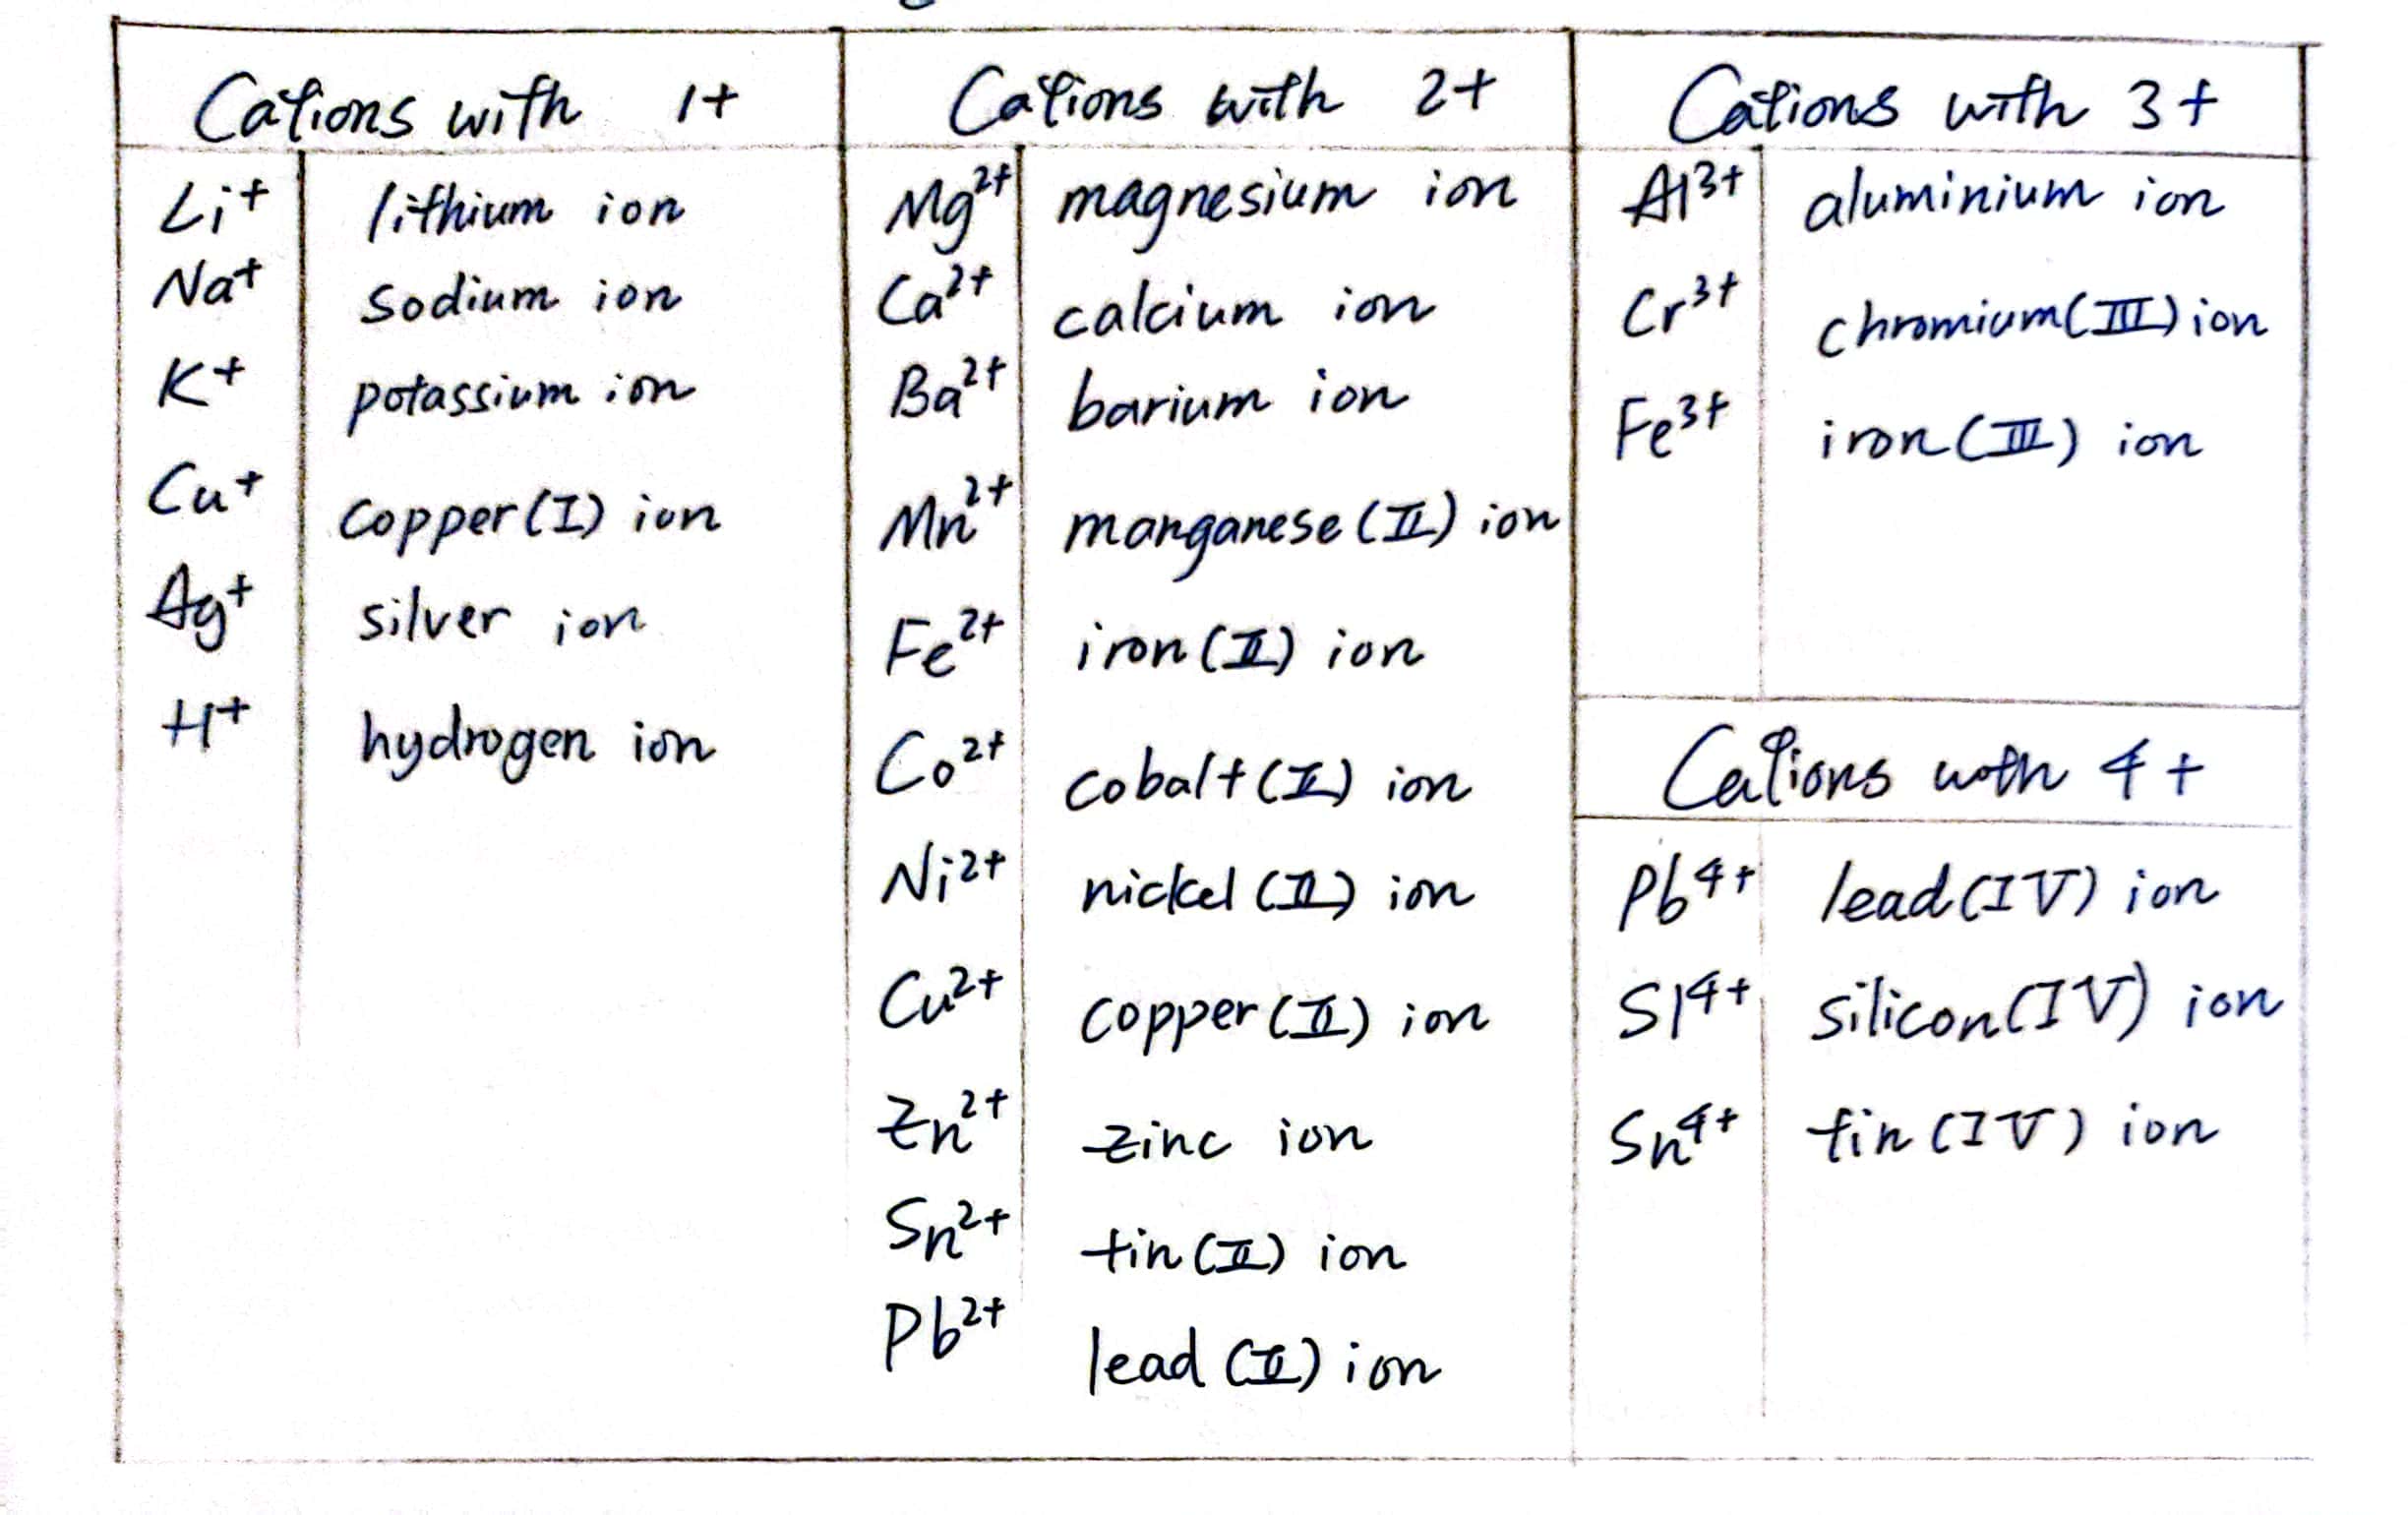 Cations with 1+
Li⁺ lithium ion
Na⁺ sodium ion
K⁺ potassium ion
Cu⁺ copper(I) ion
Ag⁺ silver ion
H⁺ hydrogen ion
Cations with 2+
Mg²⁺ magnesium ion
Ca²⁺ calcium ion
Ba²⁺ barium ion
Mn²⁺ manganese(II) ion
Fe²⁺ iron(II) ion
Co²⁺ cobalt(II) ion
Ni²⁺ nickel(II) ion
Cu²⁺ copper(II) ion
Zn²⁺ zinc ion
Sn²⁺ tin(II) ion
Pb²⁺ lead(II) ion
Cations with 3+
Al³⁺ aluminium ion
Cr³⁺ chromium(III) ion
Fe³⁺ iron(III) ion
Cations with 4+
Pb⁴⁺ lead(IV) ion
Si⁴⁺ silicon(IV) ion
Sn⁴⁺ tin(IV) ion